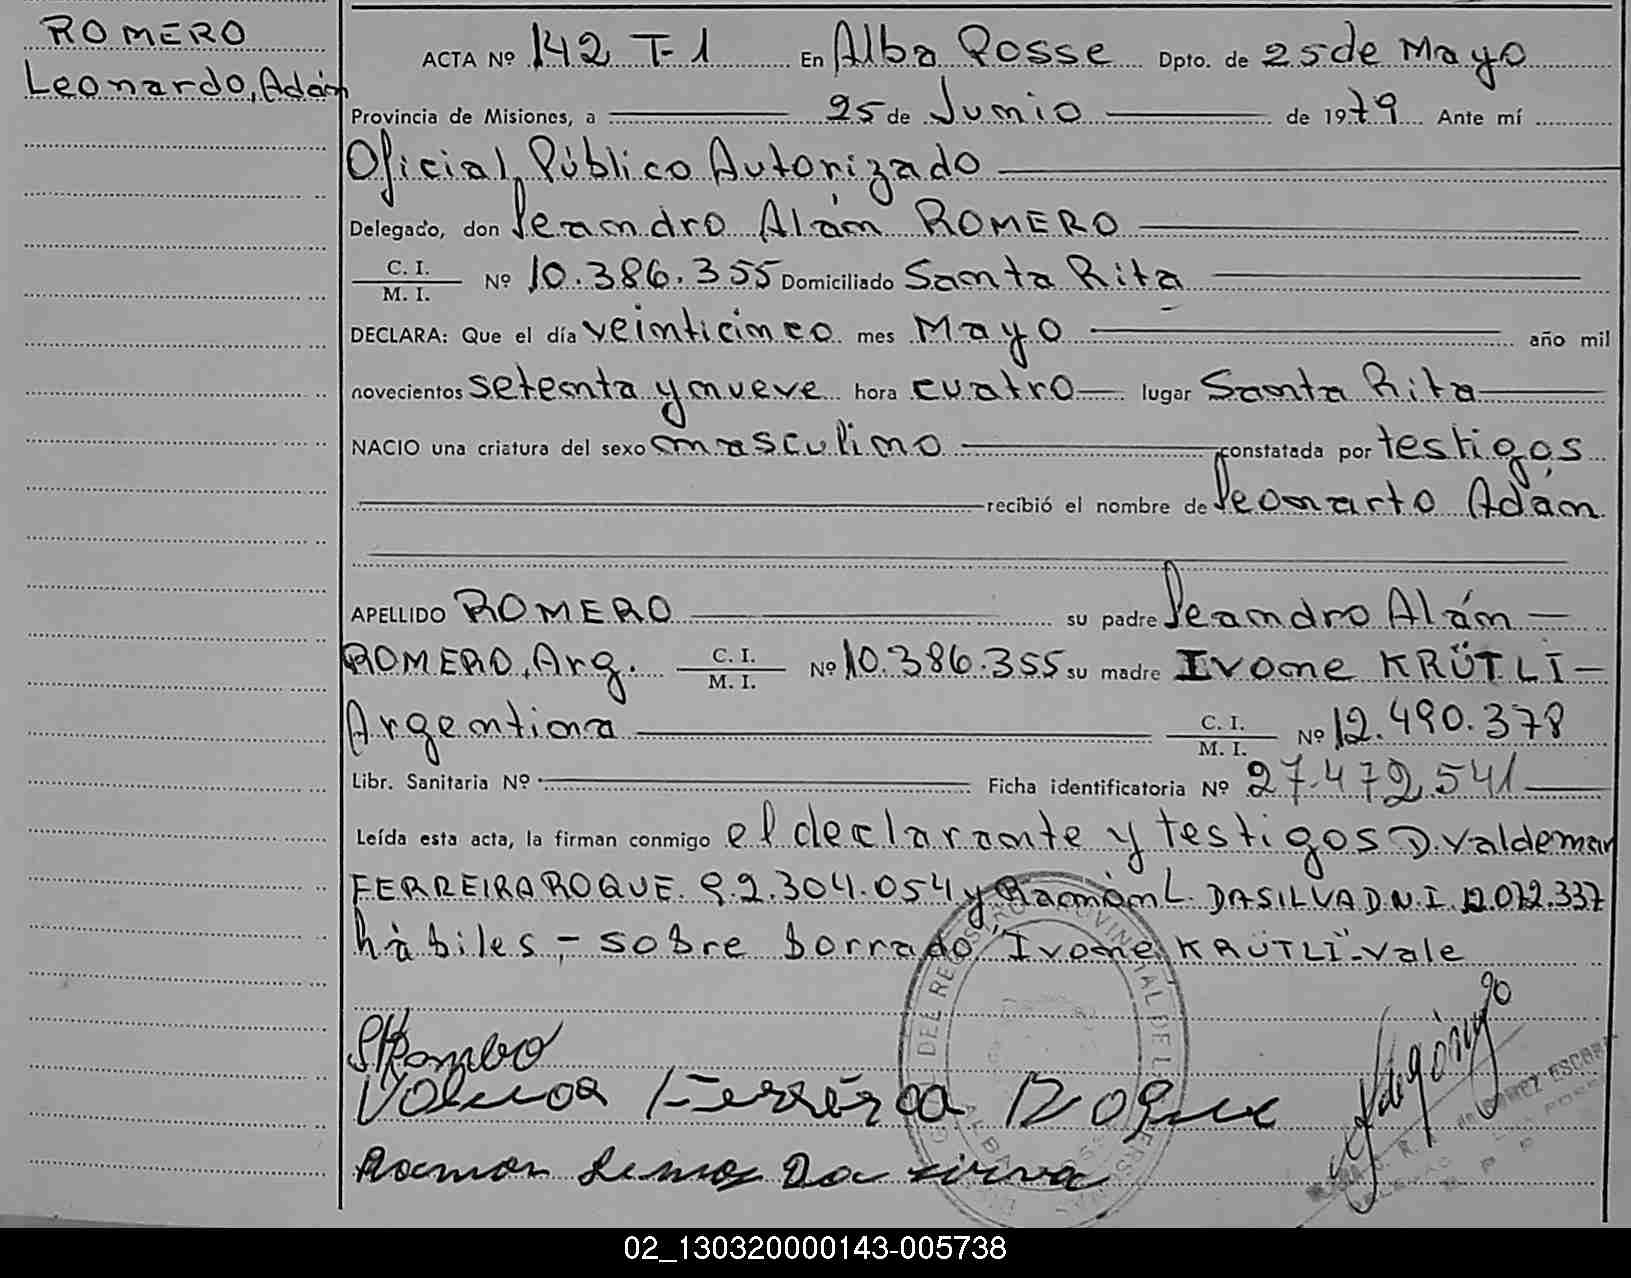 ROMERO
Leonardo, Adán
ACTA Nº 142 T-1 En Alba Posse Dpto. de 25 de Mayo
Provincia de Misiones, a 25 de Junio de 1979 Ante mí
Oficial Público Autorizado
Delegado, don Leandro Alán ROMERO
C. I.
M. I. Nº 10.386.355 Domiciliado Santa Rita
DECLARA: Que el día veinticinco mes Mayo año mil
novecientos setenta y nueve hora cuatro lugar Santa Rita
NACIO una criatura del sexo masculino constatada por testigos
recibió el nombre de Leonarto Adán
APELLIDO ROMERO su padre Leandro Alán
ROMERO, Arg. C. I. M. I. Nº 10.386.355 su madre Ivone KRÜTLI
Argentina C. I. M. I. Nº 12.490.378
Libr. Sanitaria Nº Ficha identificatoria Nº 27.472.541
Leída esta acta, la firman conmigo el declarante y testigos D. Valdemar
FERREIRA ROQUE. 9.2.304.054 y Ramón L. DASILVA D.N.I. 12.072.337
hábiles,- sobre borrado "Ivone KRÜTLI"-Vale
Ferreira Roque
Ramon Lemos Da
02_130320000143-005738